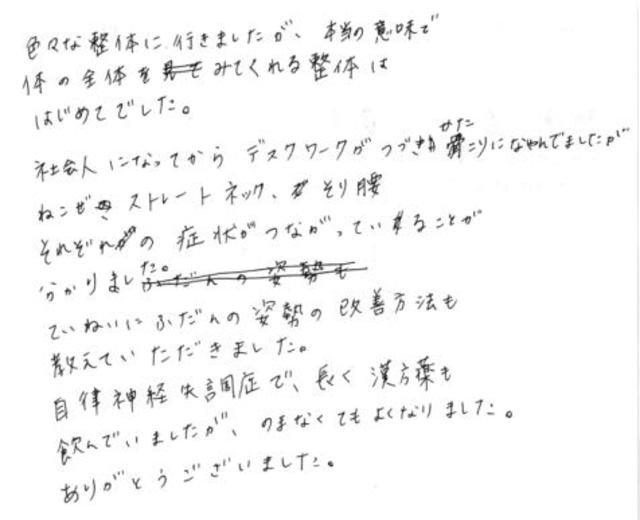 色々な整体に行きましたが、本当の意味で
体の全体をみてくれる整体は
はじめてでした。
社会人になってから デスクワークがつづき肩こりになやんでましたが
かた
ねこぜ、ストレートネック、そり腰
それぞれの症状がつながっていることが
分かりました。ふだんの姿勢も
ていねいにふだんの姿勢の改善方法も
教えていただきました。
自律神経失調症で、長く漢方薬も
飲んでいましたが、のまなくてもよくなりました。
ありがとうございました。